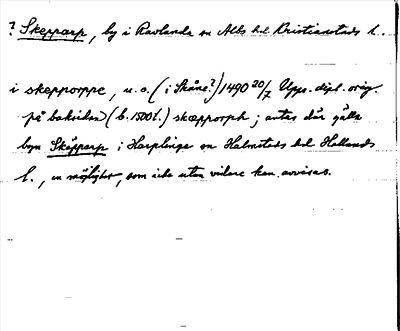 ? Skepparp, by i Ravlunda sn Albo hd Kristianstads l.
i skepporppe, u.o. (i Skåne?) 1490 20/7 Upps. dipl. orig.
på baksidan (b. 1500 t.) skæpporph ; antas där gälla
byn Skäpparp i Harplinge sn Halmstads hd Hallands
l., en möjlighet, som icke utan vidare kan avvisas.